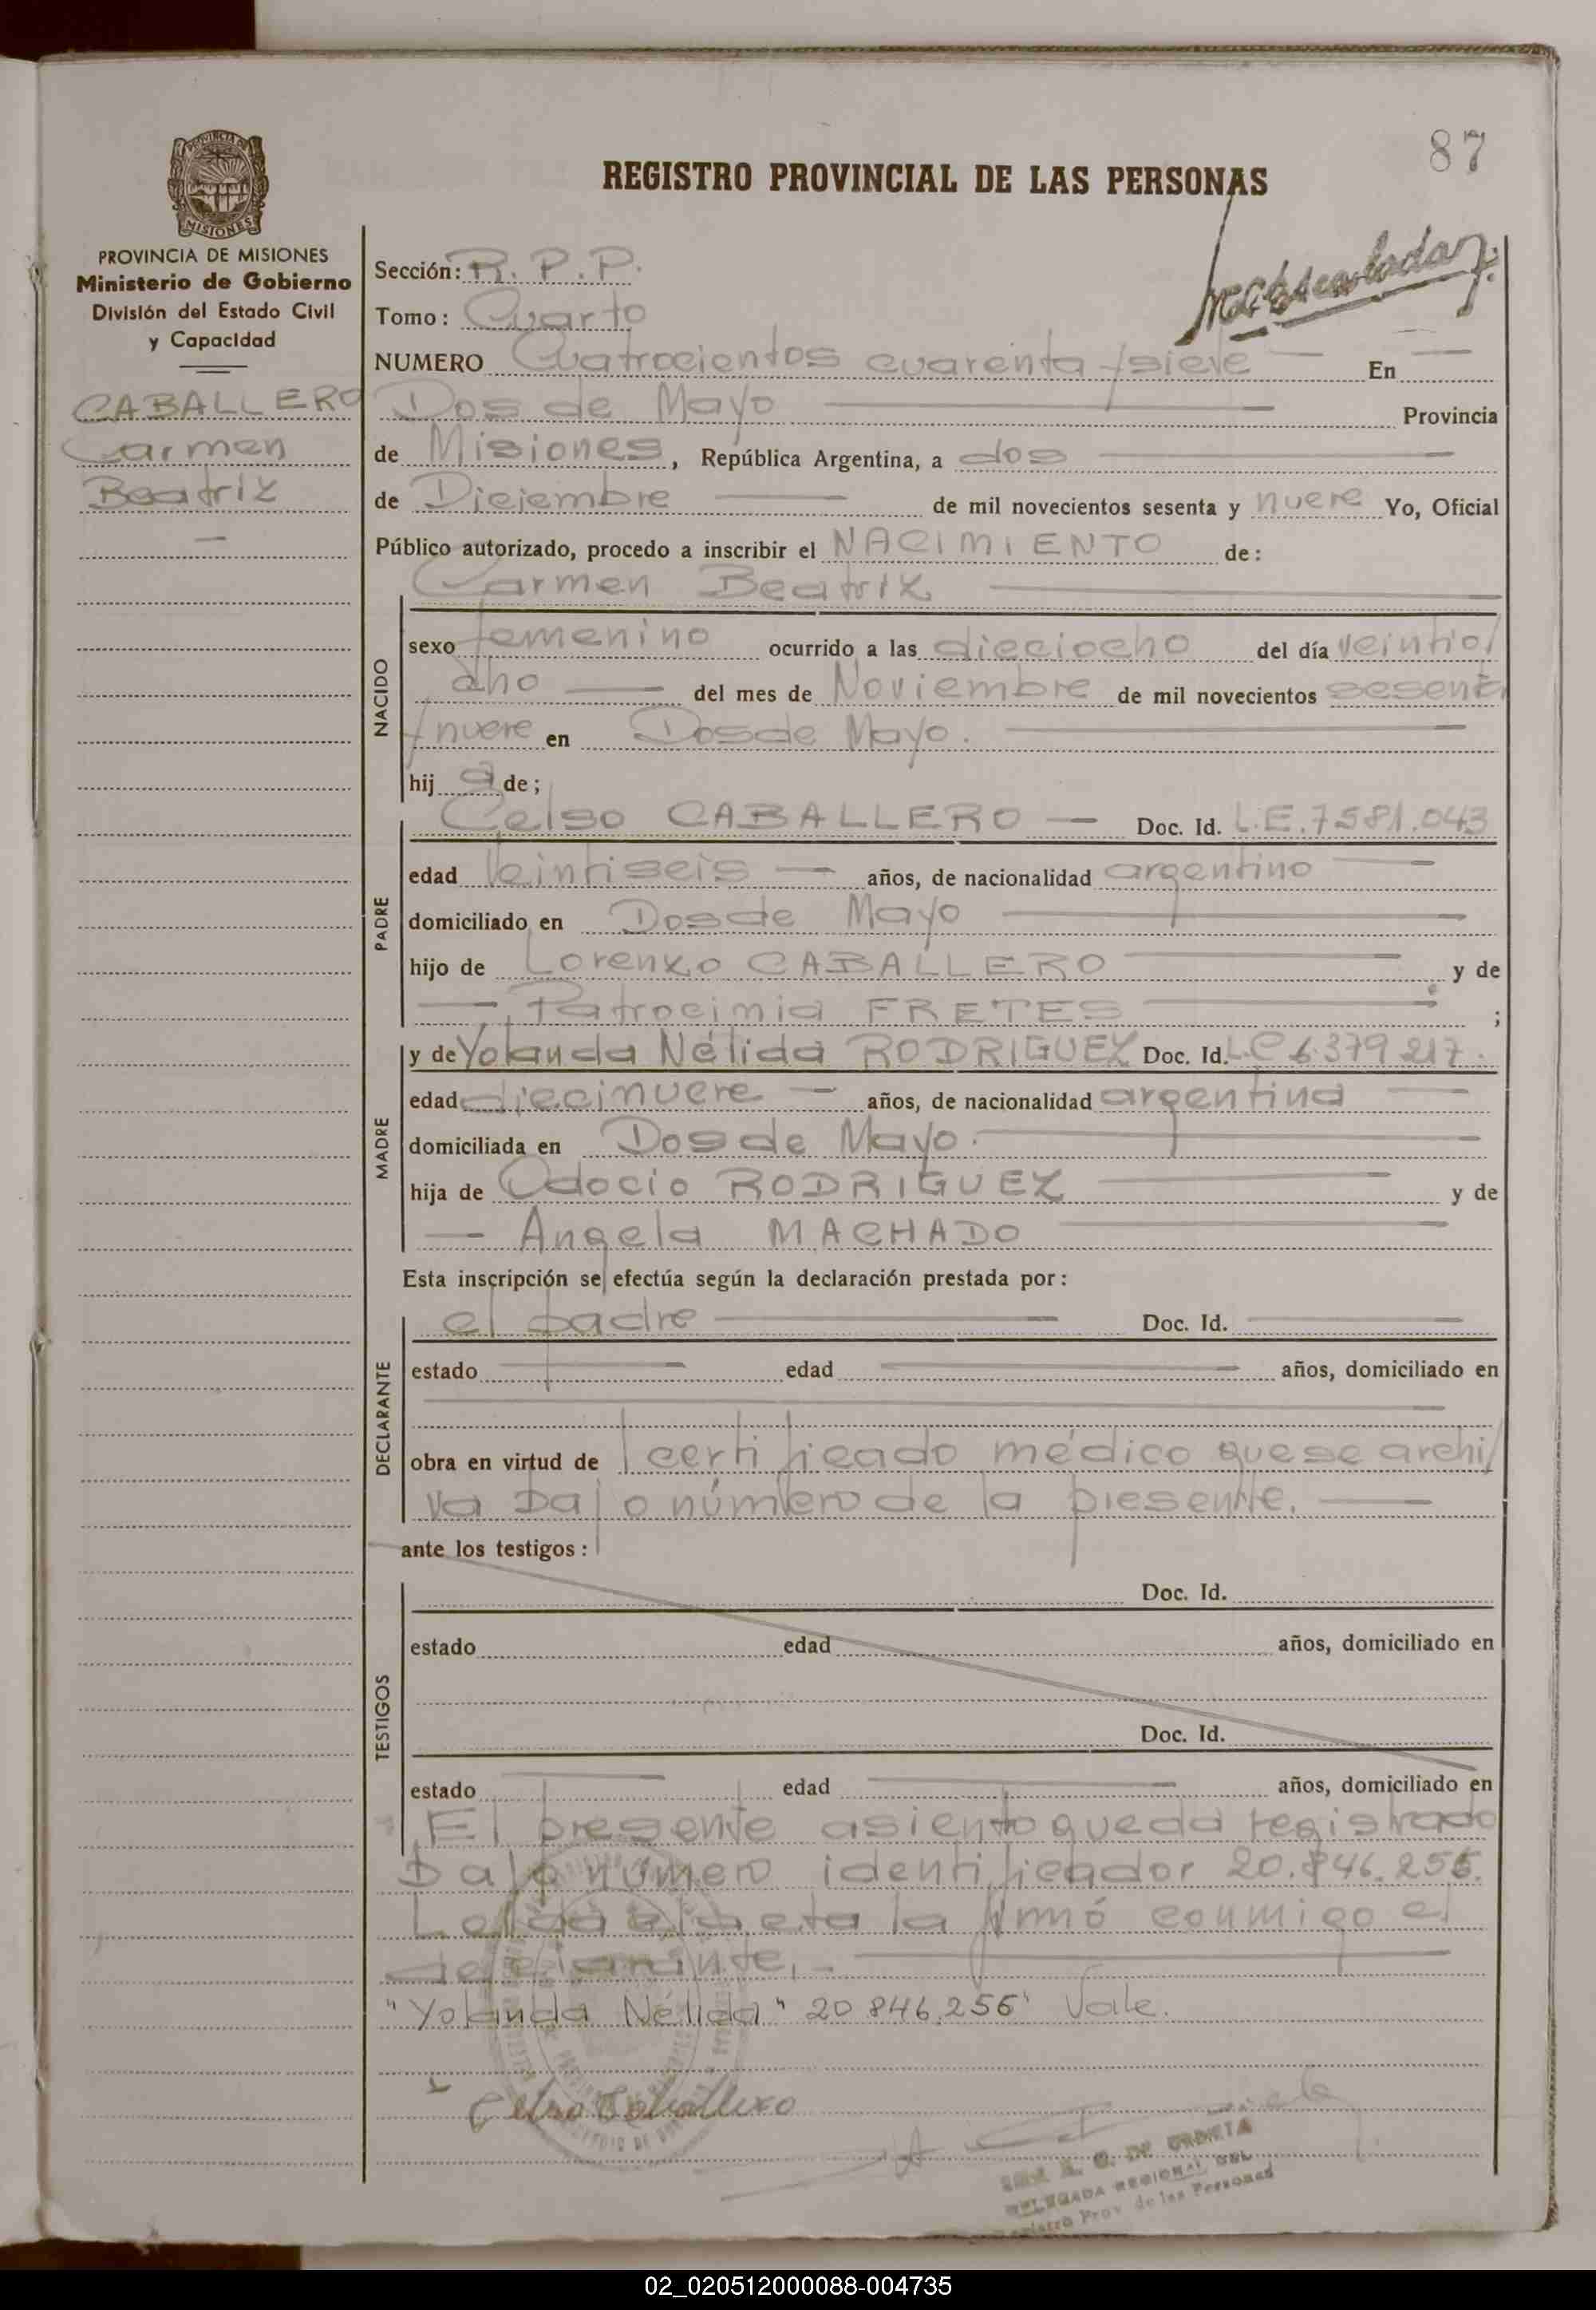 87
PROVINCIA DE MISIONES
REGISTRO PROVINCIAL DE LAS PERSONAS
PROVINCIA DE MISIONES
Ministerio de Gobierno
División del Estado Civil
y Capacidad
CABALLERO
Carmen
Beatriz
Sección: R. P. P.
Tomo: Cuarto
NUMERO Cuatrocientos cuarenta y siete — En —
Dos de Mayo — Provincia
de Misiones, República Argentina, a dos —
de Diciembre — de mil novecientos sesenta y nueve Yo, Oficial
Público autorizado, procedo a inscribir el NACIMIENTO de:
Carmen Beatriz —
NACIDO
sexo femenino ocurrido a las dieciocho del día veintio/
cho — del mes de Noviembre de mil novecientos sesenta
y nueve en Dos de Mayo. —
hij a de;
PADRE
Celso CABALLERO — Doc. Id. L.E. 7581.043
edad Veintiseis — años, de nacionalidad argentino —
domiciliado en Dos de Mayo —
hijo de Lorenzo CABALLERO — y de
— Patrocinia FRETES — ;
MADRE
y de Yolanda Nélida RODRIGUEZ Doc. Id. L.C 6.379.217.
edad diecinueve — años, de nacionalidad argentina —
domiciliada en Dos de Mayo. —
hija de Odocio RODRIGUEZ — y de
— Angela MACHADO —
Esta inscripción se efectúa según la declaración prestada por:
DECLARANTE
el padre — Doc. Id. —
estado — edad — años, domiciliado en
—
obra en virtud de certificado médico que se archi/
va bajo número de la presente. —
ante los testigos:
TESTIGOS
Doc. Id.
estado edad años, domiciliado en
Doc. Id.
estado — edad — años, domiciliado en
El presente asiento queda registrado
bajo número identificador 20.846.256.
Leída el acta la firmó conmigo el
declarante.- —
"Yolanda Nélida" 20 846.256" Vale.
Celso Caballero
DE URRETA
DELEGADA REGIONAL DEL
Registro Prov. de las Personas
02_020512000088-004735